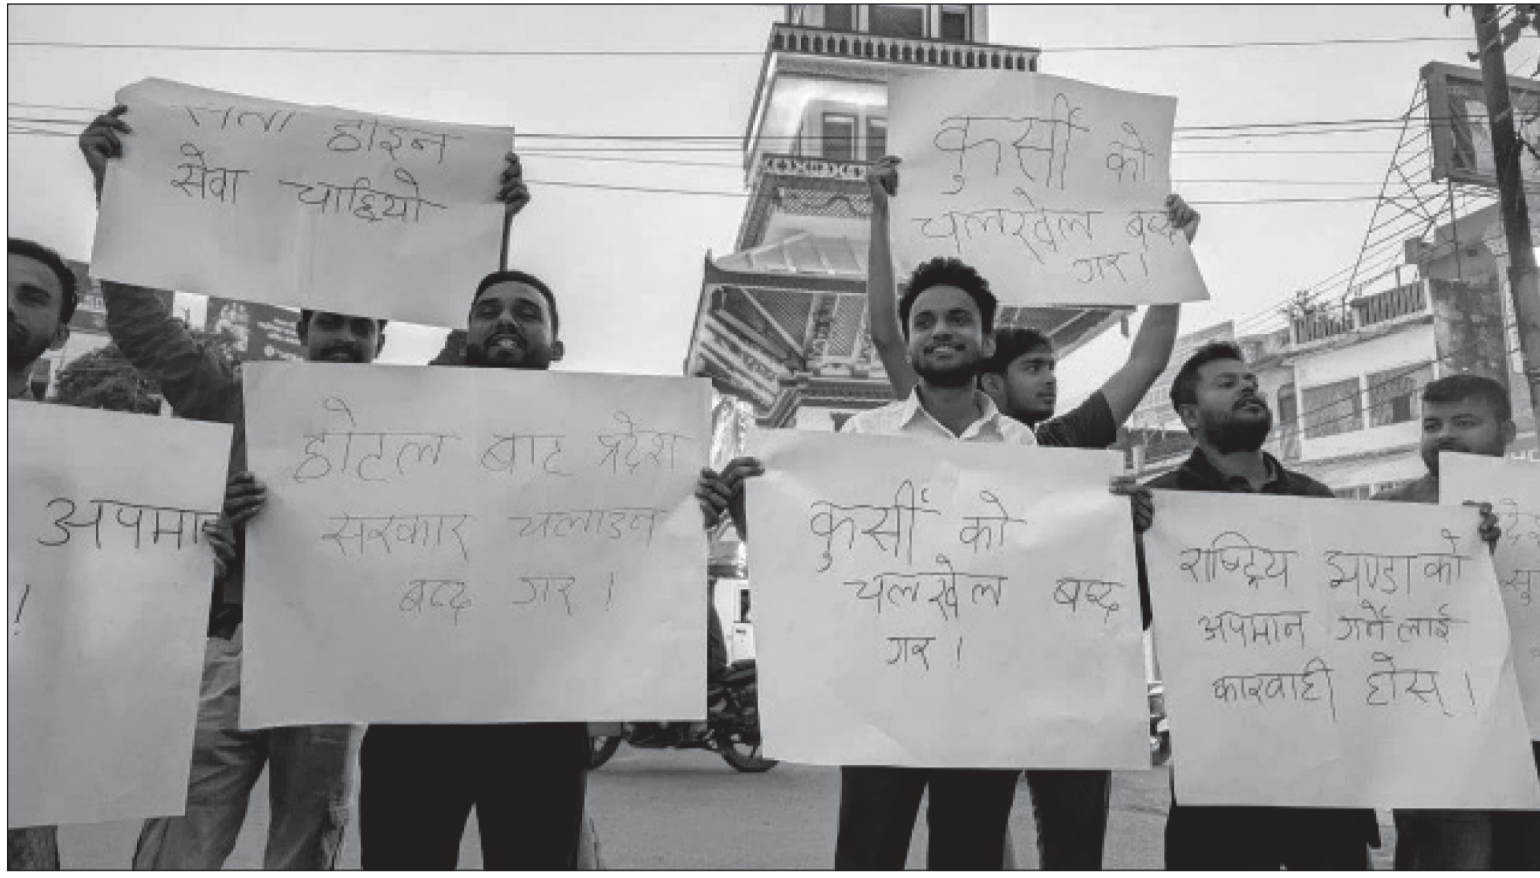 सत्ता होइन
सेवा चाहियो
कुर्सी को
चलखेल बन्द
गर।
अपमान
!
होटल बाट प्रदेश
सरकार चलाउन
बन्द गर !
कुर्सी को
चलखेल बन्द
गर !
राष्ट्रिय झण्डा को
अपमान गर्ने लाई
कारवाही होस् ।